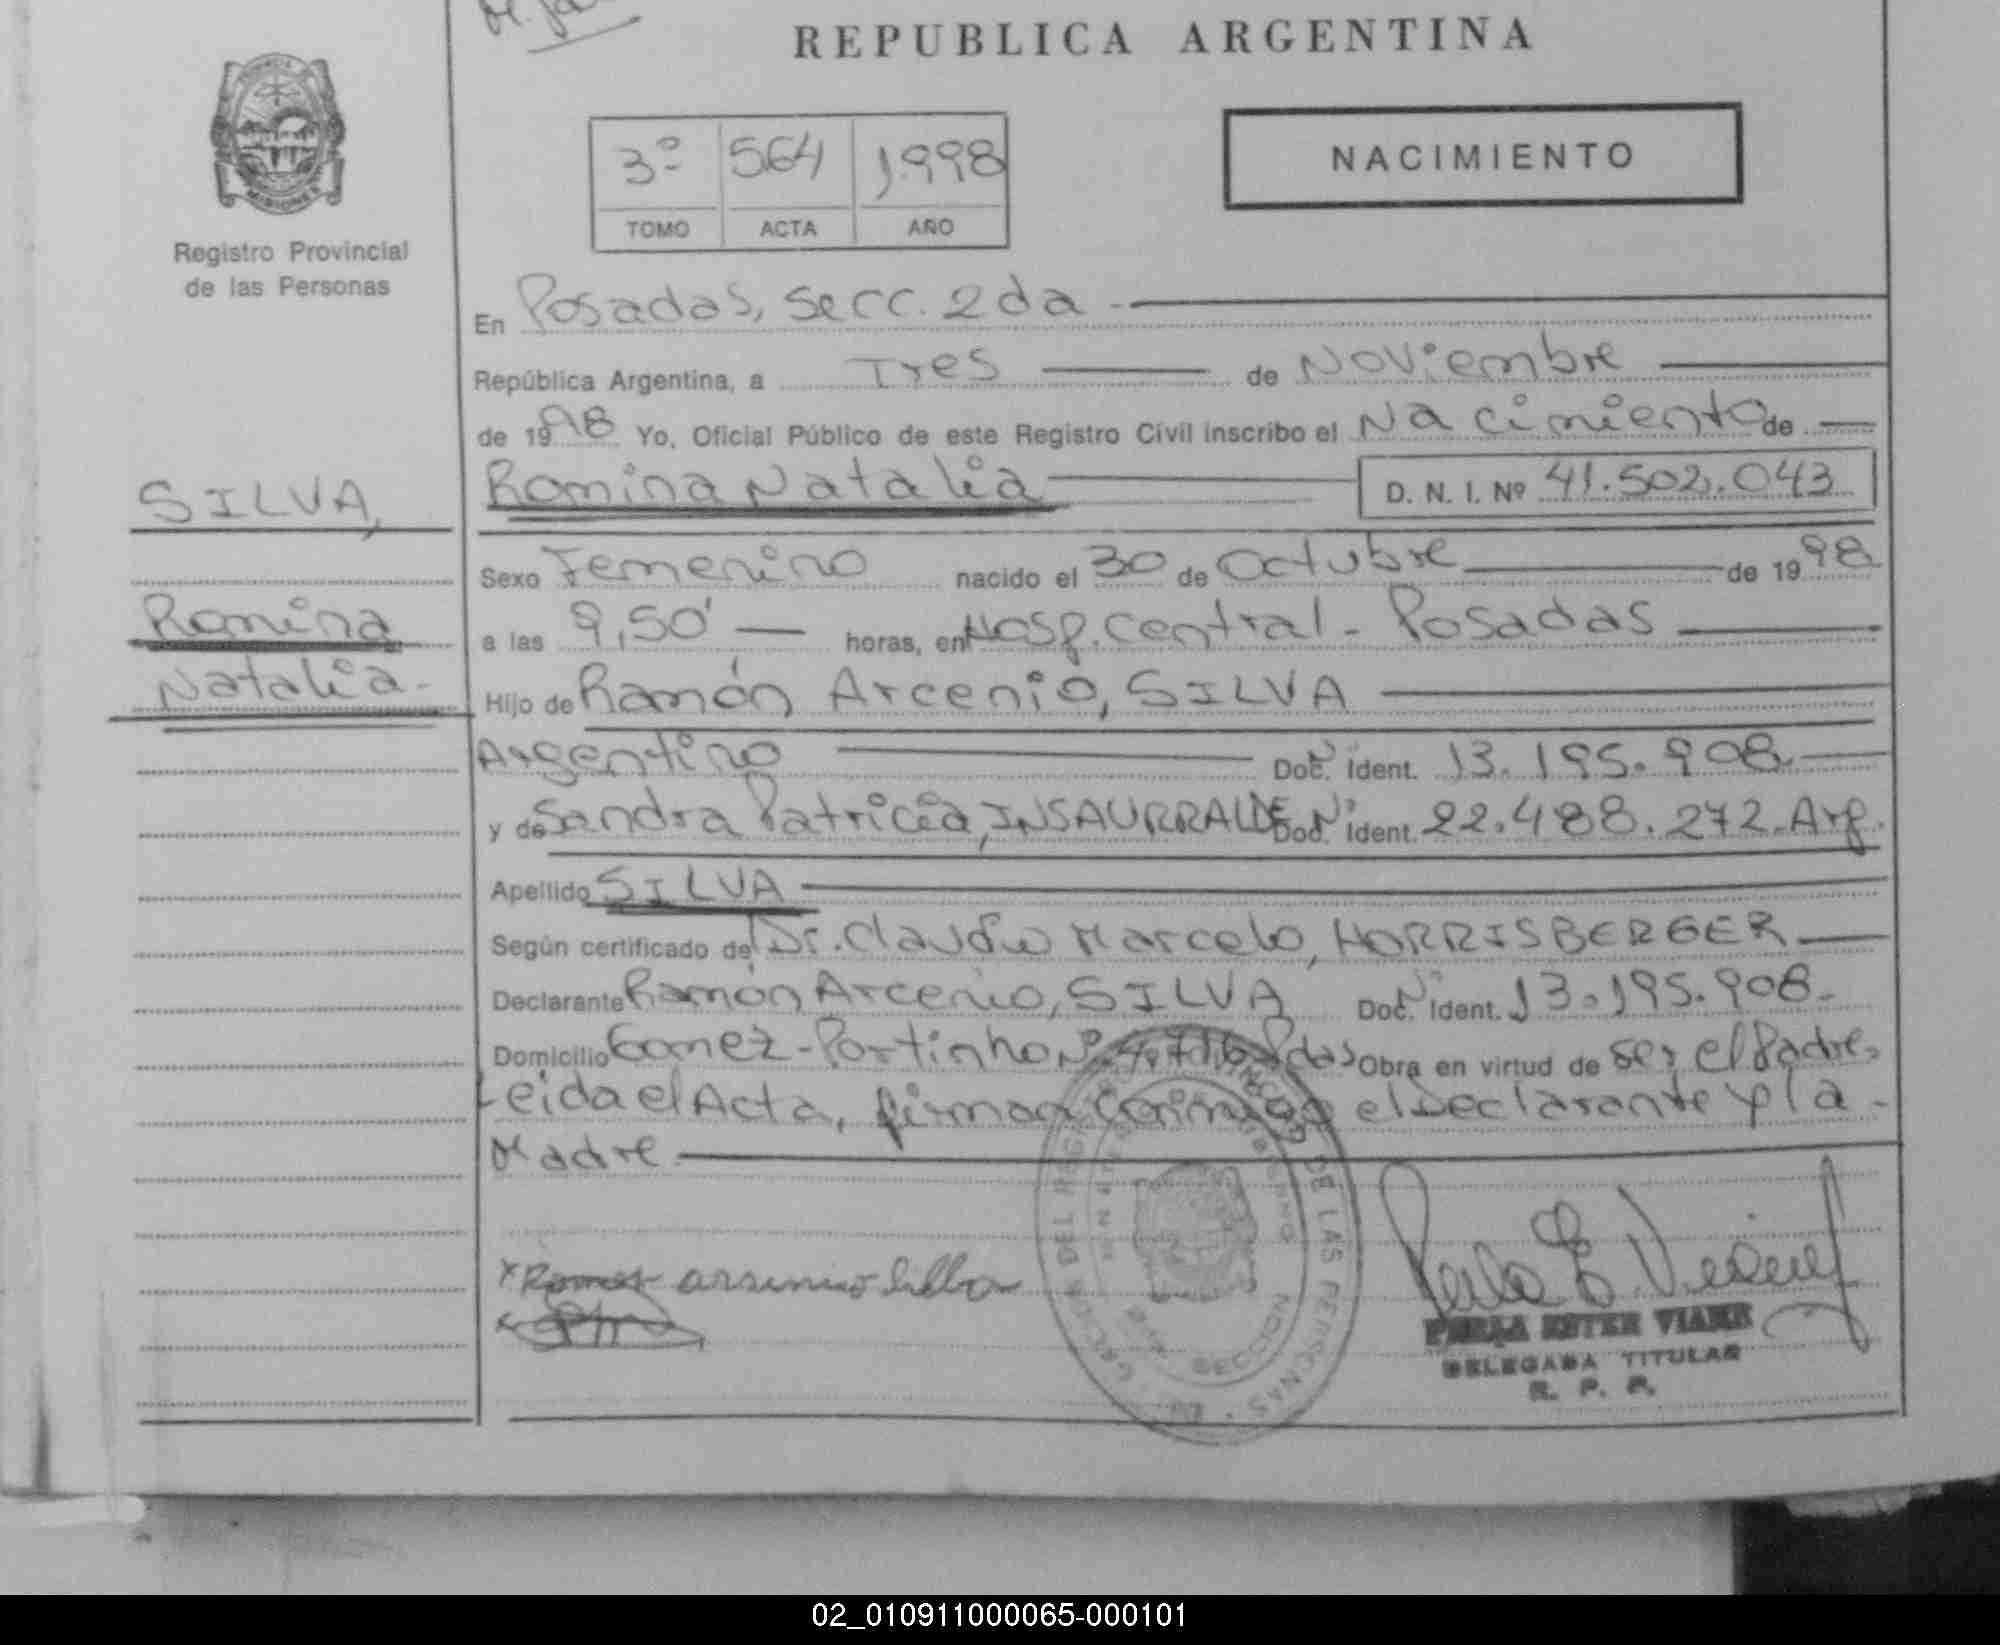 REPUBLICA ARGENTINA
PROVINCIA
MISIONES
Registro Provincial
de las Personas
3º 564 1.998
TOMO ACTA AÑO
NACIMIENTO
En Posadas, Secc. 2da -
República Argentina, a Tres de Noviembre
de 1998 Yo, Oficial Público de este Registro Civil inscribo el Nacimiento de
Romina Natalia D. N. I. Nº 41.502.043
SILVA,
Romina
Natalia-
Sexo Femenino nacido el 30 de Octubre de 1998
a las 9,50' horas, en Hosp. Central - Posadas
Hijo de Ramón Arcenio, SILVA
Argentino Doc. Nº Ident. 13.195.908
y de Sandra Patricia, INSAURRALDE Doc. Nº Ident. 22.488.272-Arg.
Apellido SILVA
Según certificado de Dr. Claudio Marcelo, HORRISBERGER
Declarante Ramón Arcenio, SILVA Doc. Nº Ident. 13.195.908-
Domicilio Gomez-Portinho Nº Pdas Obra en virtud de ser el Padre,
Leida el Acta, firman conmigo el Declarante y la -
Madre.
x Ramon arsenio silba
DEL REGISTRO DE LAS PERSONAS
SECCION
Perla E. Viane
PERLA ESTER VIANE
DELEGADA TITULAR
R. P. P.
02_010911000065-000101